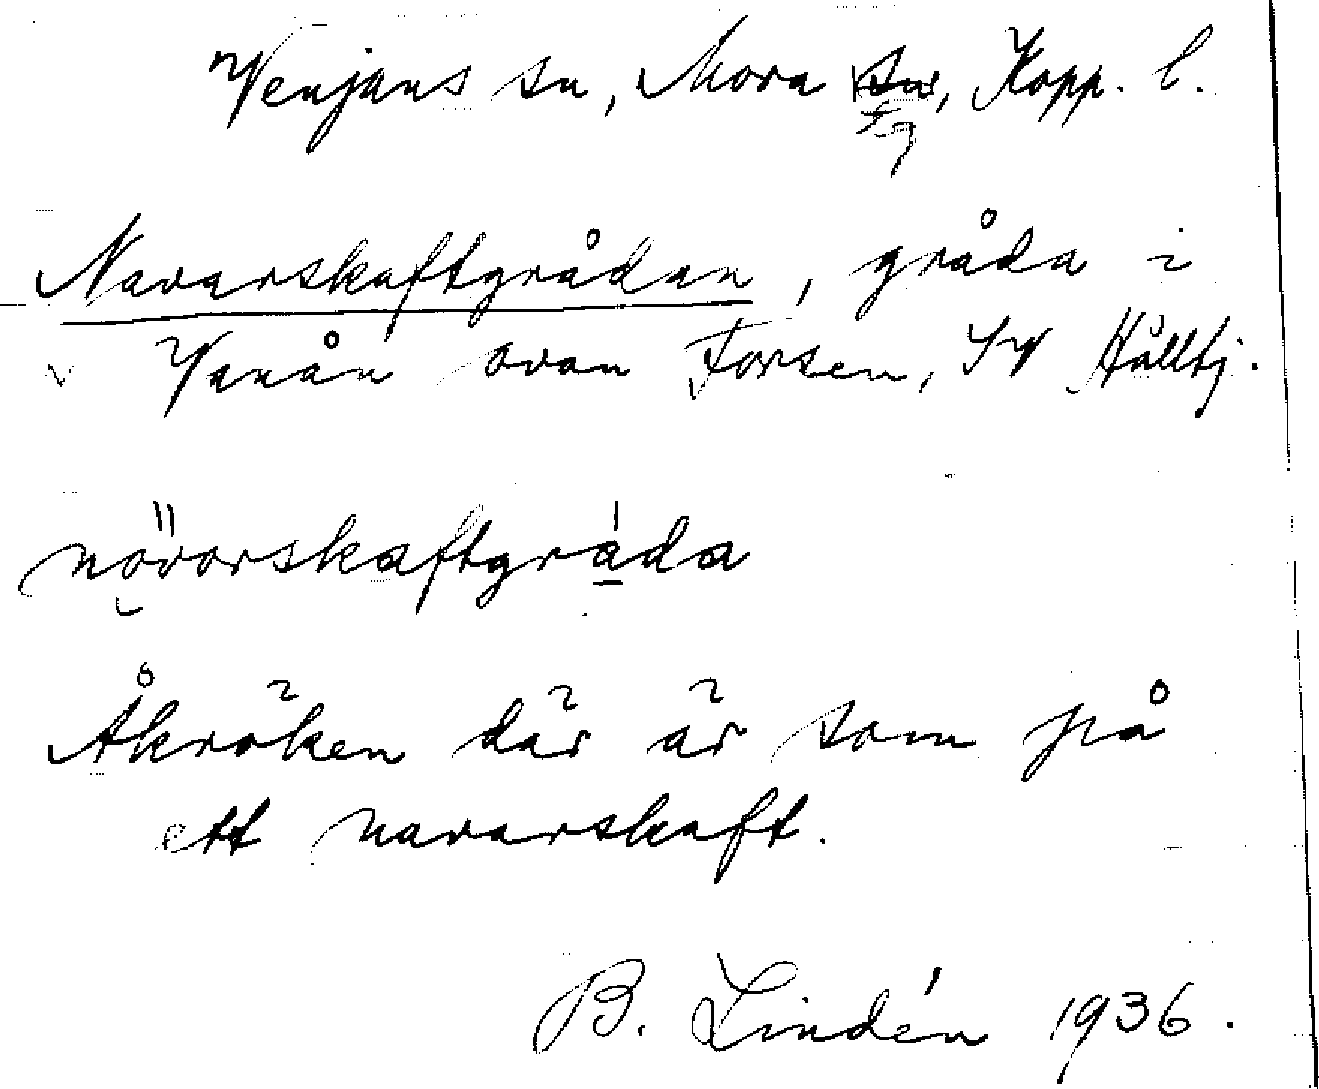 Venjans sn, Mora, Kopp. l.
Navarskaftgrådan, gråda i
Vanån ovan Forsen, SV Hålltj.
növorskaftgráda
Åkröken där är som på
ett navarskaft.
B. Lindén 1936.